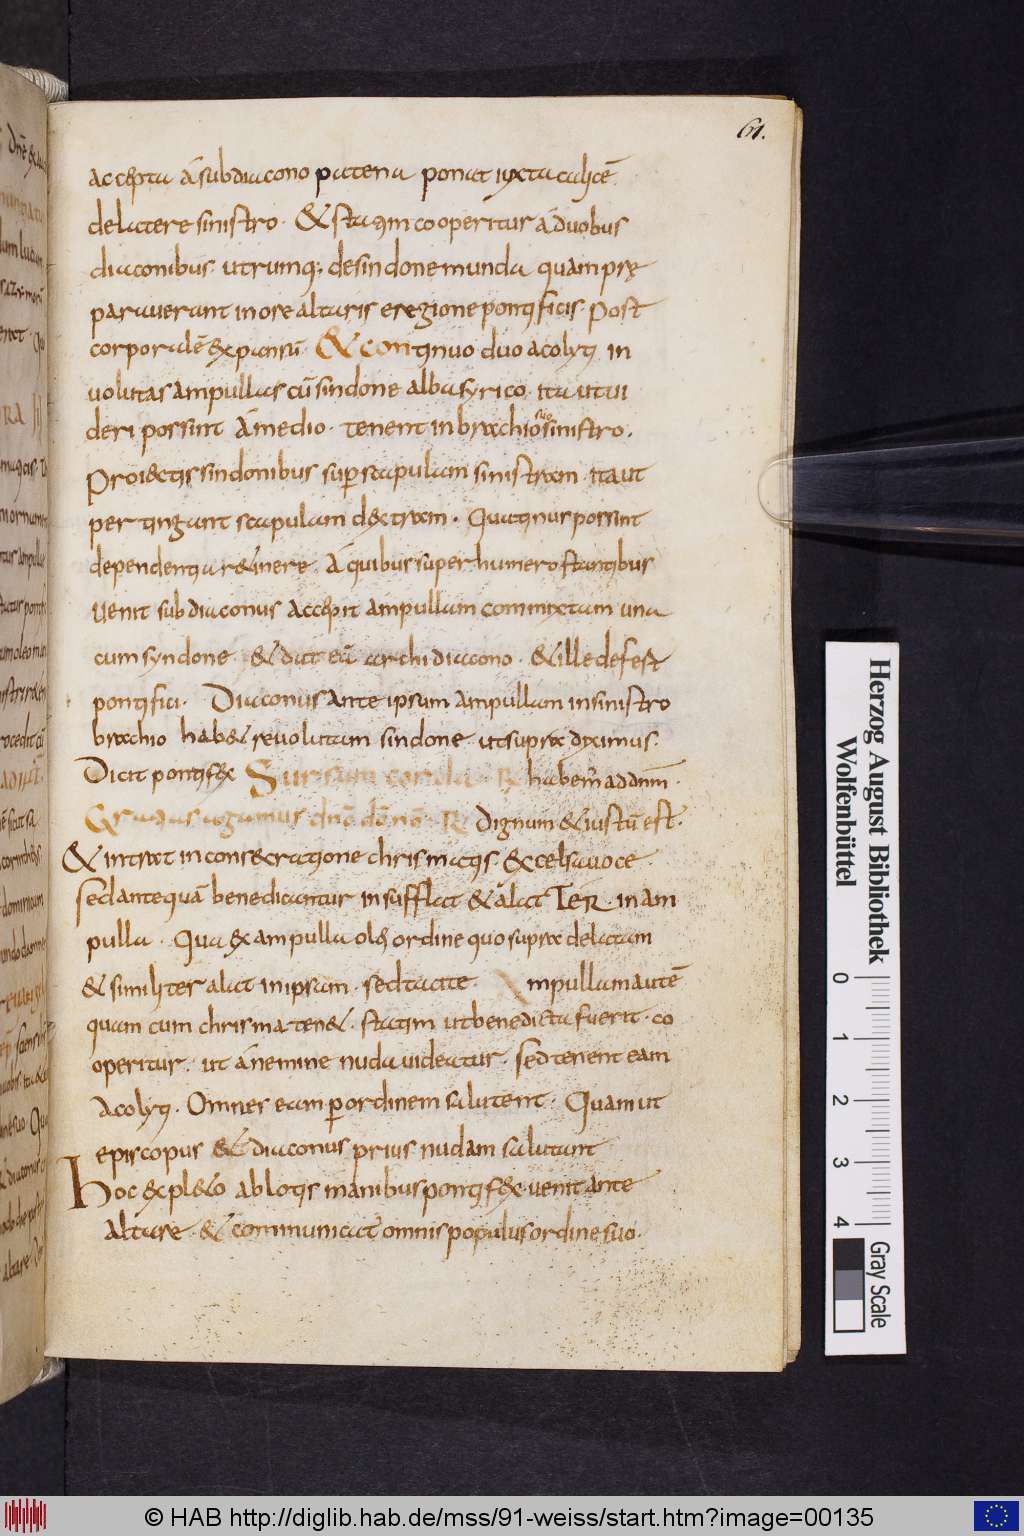 61.
accepta á subdiacono patena ponat iuxta calicē
de latere sinistro · & statim cooperitur á duobus
diaconibus · utrumq; de sindone munda quam prę
parauerant in ore altaris e regione pontificis · Post
corporalē expansū · & continuo duo acolyti in
uolutas ampullas cū sindone alba syrico · ita ut ui
deri possint á medio · tenent in brachio suo sinistro ·
Proiectis sindonibus sup scapulam sinistram · ita ut
pertingant scapulam dextram · Quatinus possint
dependentia retinere · A quibus super humero stantibus
uenit subdiaconus accepit ampullam commixtam una
cum syndone · & dat eā archidiacono · & ille defest
pontifici · Diaconus ante ipsum ampullam in sinistro
brachio habet reuolutam sindone ut supra diximus ·
Dicit pontifex Sursum corda R habem̄ ad dnm̄ ·
Gratias agamus dn̄o dō no R Dignum & iustū est ·
& intrat in consecratione chrismatis · excelsa uoce
sed antequā benedicantur insufflat & alat TER · in am
pulla · Qua ex ampulla olei ordine quo supra delatam
& similiter alat in ipsam · sed tacite · Ampullam autē
quam cum chrisma tenet · statim ut benedicta fuerit · co
operitur · ut á nemine nuda uideatur · sed tenent eam
acolyti · Omnes eam p ordinem salutent · Quam ut
episcopus & diaconus prius nudam salutant
Hoc expleto ablotis manibus pontifex · uenit ante
altare · & communicat omnis populus ordine suo ·
Herzog August Bibliothek
Wolfenbüttel
0 1 2 3 4
Gray Scale
© HAB http://diglib.hab.de/mss/91-weiss/start.htm?image=00135